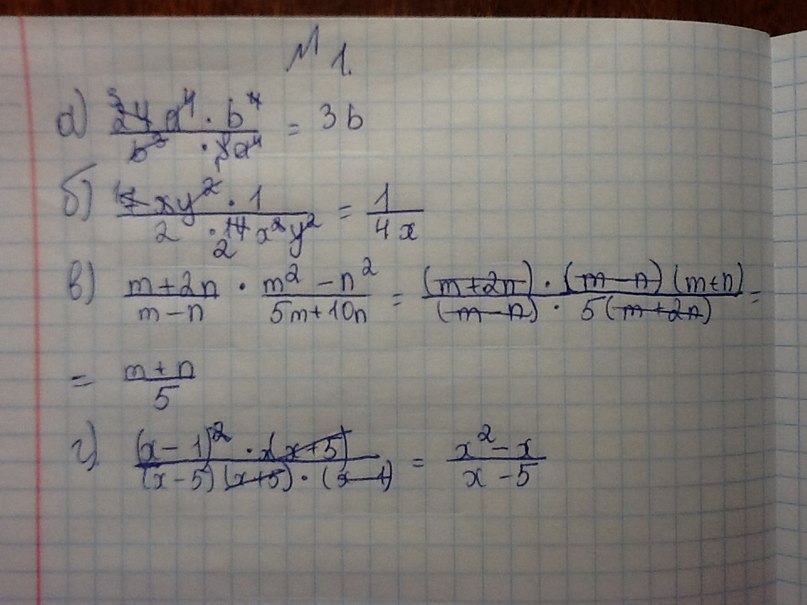 № 1.
а) 3 24 a⁴ · b⁴ / b³ · 8a⁴ = 3b
б) 1 7 xy² · 1 / 2 · 14 2 x²y² = 1 / 4x
в) m+2n / m−n · m² − n² / 5m+10n = (m+2n) · (m−n) (m+n) / (m−n) · 5(m+2n) =
= m+n / 5
г) (x−1)² · x(x+5) / (x−5)(x+5) · (x−1) = x² − x / x − 5